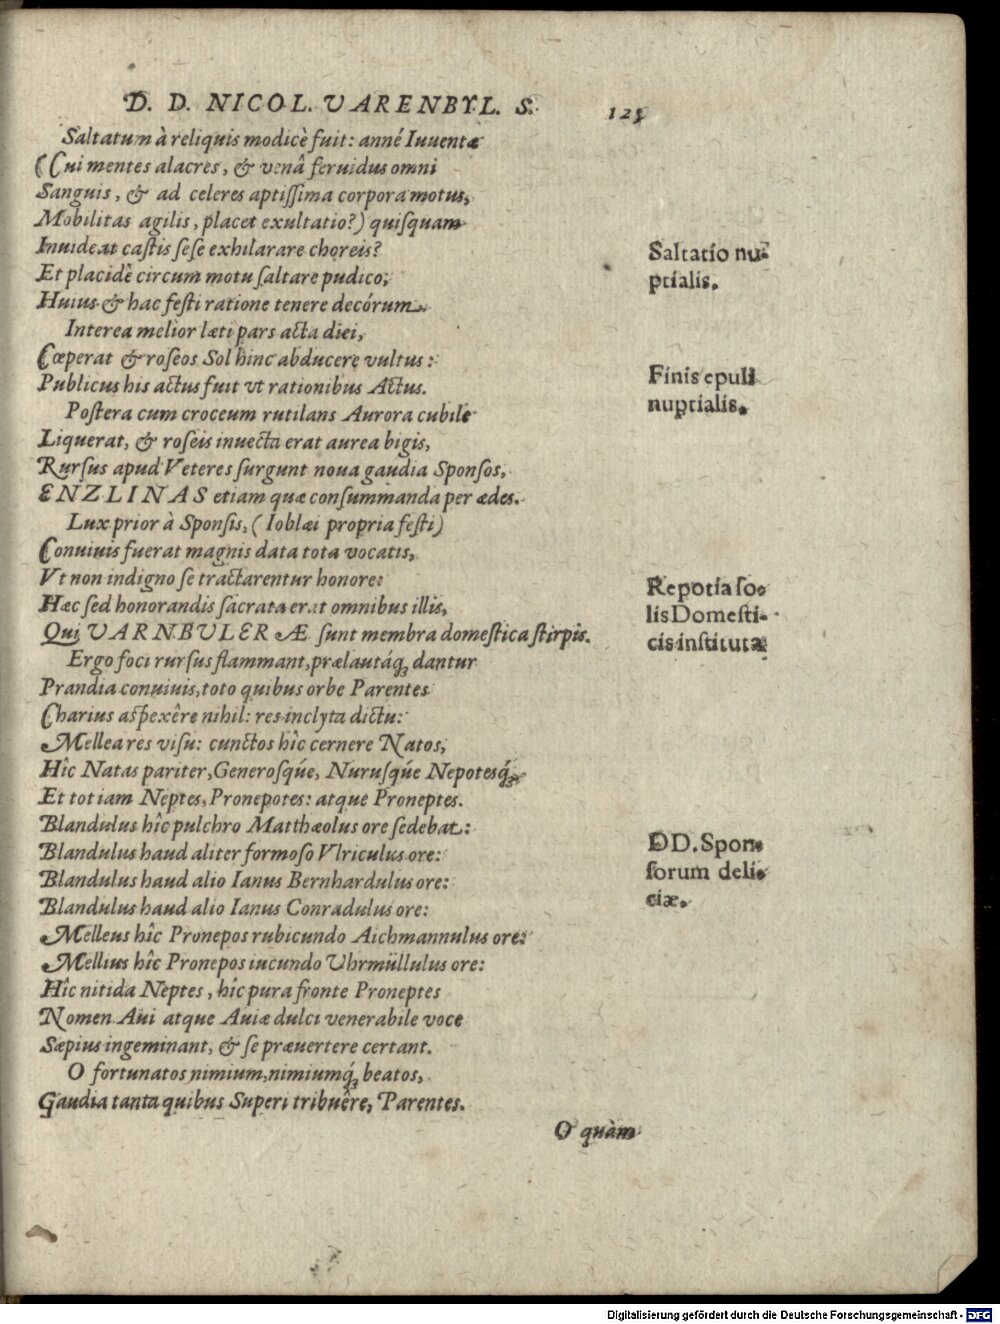 D. D. NICOL. VARENBYL. S. 125
Saltatum à reliquis modicè fuit: anné Iuuentæ
(Cui mentes alacres, & venâ feruidus omni
Sanguis, & ad celeres aptißima corpora motus,
Mobilitas agilis, placet exultatio?) quiſquam
Inuideat caſtis ſeſe exhilarare choreis?
Et placidè circum motu ſaltare pudico,
Huius & hac feſti ratione tenere decórum.
Saltatio nu-
ptialis.
Interea melior læti pars acta diei,
Cœperat & roſeos Sol hinc abducere vultus:
Publicus his actus fuit vt rationibus Actus.
Finis epuli
nuptialis.
Poſtera cum croceum rutilans Aurora cubile
Liquerat, & roſeis inuecta erat aurea bigis,
Rurſus apud Veteres ſurgunt noua gaudia Sponſos,
ENZLINAS etiam quæ conſummanda per ædes.
Lux prior à Sponſis, (Ioblæi propria feſti)
Conuiuis fuerat magnis data tota vocatis,
Vt non indigno ſe tractarentur honore:
Hæc ſed honorandis ſacrata erat omnibus illis,
Qui VARNBVLERÆ ſunt membra domeſtica ſtirpis.
Repotia ſo-
lis Domeſti-
cis inſtituta
Ergo foci rurſus flammant, prælautáq; dantur
Prandia conuiuis, toto quibus orbe Parentes
Charius aſpexêre nihil: res inclyta dictu:
Mellea res viſu: cunctos hîc cernere Natos,
Hîc Natas pariter, Generoſqúe, Nuruſqúe Nepotesq́;
Et tot iam Neptes, Pronepotes: atque Proneptes.
Blandulus hîc pulchro Matthæolus ore ſedebat:
Blandulus haud aliter formoſo Vlriculus ore:
Blandulus haud alio Ianus Bernhardulus ore:
Blandulus haud alio Ianus Conradulus ore:
DD. Spon-
ſorum deli-
ciæ.
Melleus hîc Pronepos rubicundo Aichmannulus ore:
Mellius hîc Pronepos iucundo Vhrmüllulus ore:
Hîc nitida Neptes, hîc pura fronte Proneptes
Nomen Aui atque Auiæ dulci venerabile voce
Sæpius ingeminant, & ſe præuertere certant.
O fortunatos nimium, nimiumq́; beatos,
Gaudia tanta quibus Superi tribuêre, Parentes.
O quàm
Digitalisierung gefördert durch die Deutsche Forschungsgemeinschaft - DFG